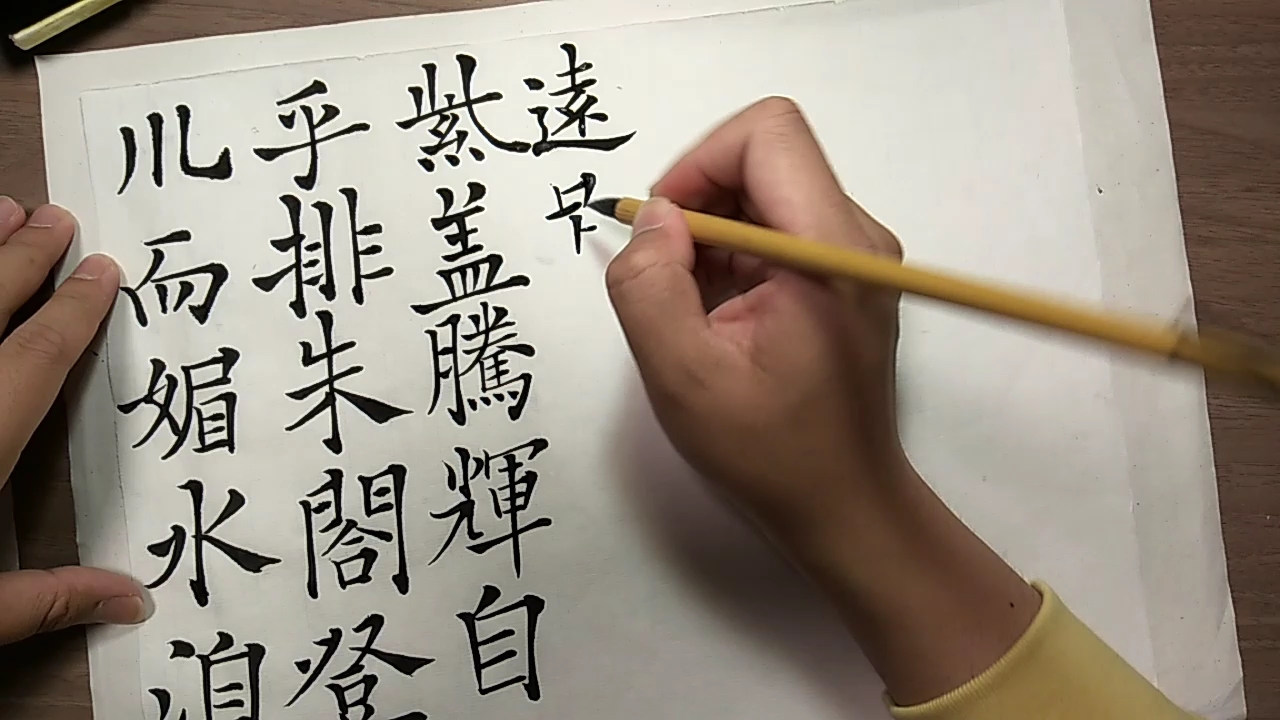 川而媚水洎
乎排朱閣登
紫盖騰輝自
遠